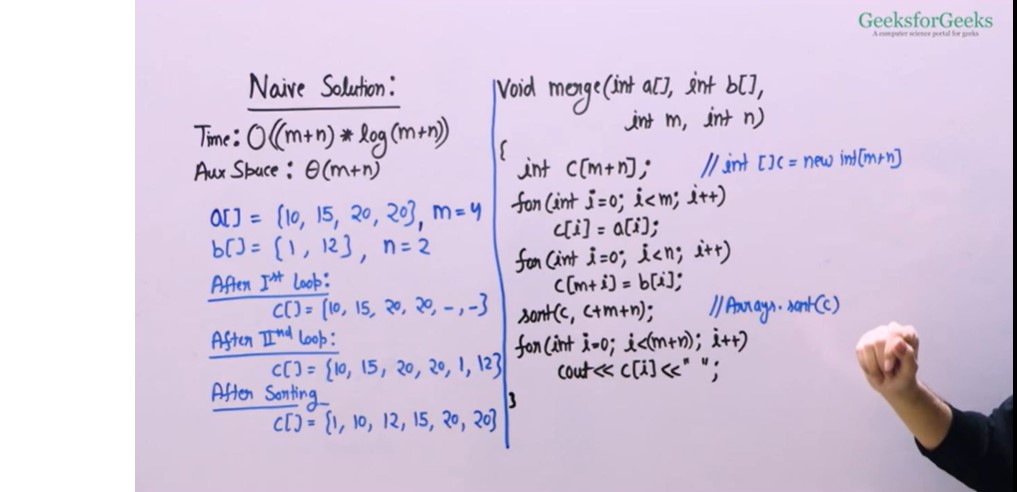 GeeksforGeeks
A computer science portal for geeks
Naive Solution:
Time: O((m+n) * log(m+n))
Aux Space: θ(m+n)
a[] = {10, 15, 20, 20}, m=4
b[] = {1, 12}, n=2
After Ist loop:
c[] = {10, 15, 20, 20, -, -}
After IInd loop:
c[] = {10, 15, 20, 20, 1, 12}
After Sorting
c[] = {1, 10, 12, 15, 20, 20}
Void merge(int a[], int b[],
int m, int n)
{
int c[m+n]; //int []c = new int[m+n]
for(int i=0; i<m; i++)
c[i] = a[i];
for(int i=0; i<n; i++)
c[m+i] = b[i];
sort(c, c+m+n); //Arrays.sort(c)
for(int i=0; i<(m+n); i++)
cout<< c[i]<<" ";
}